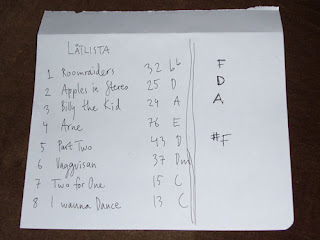 LÅTLISTA
1 Roomraiders 32 bb
2 Apples in Stereo 25 D
3 Billy the Kid 24 A
4 Arne 76 E
5 Part Two 43 D
6 Vaggvisan 37 Dm
7 Two for One 15 C
8 I wanna Dance 13 C
F
D
A
#F